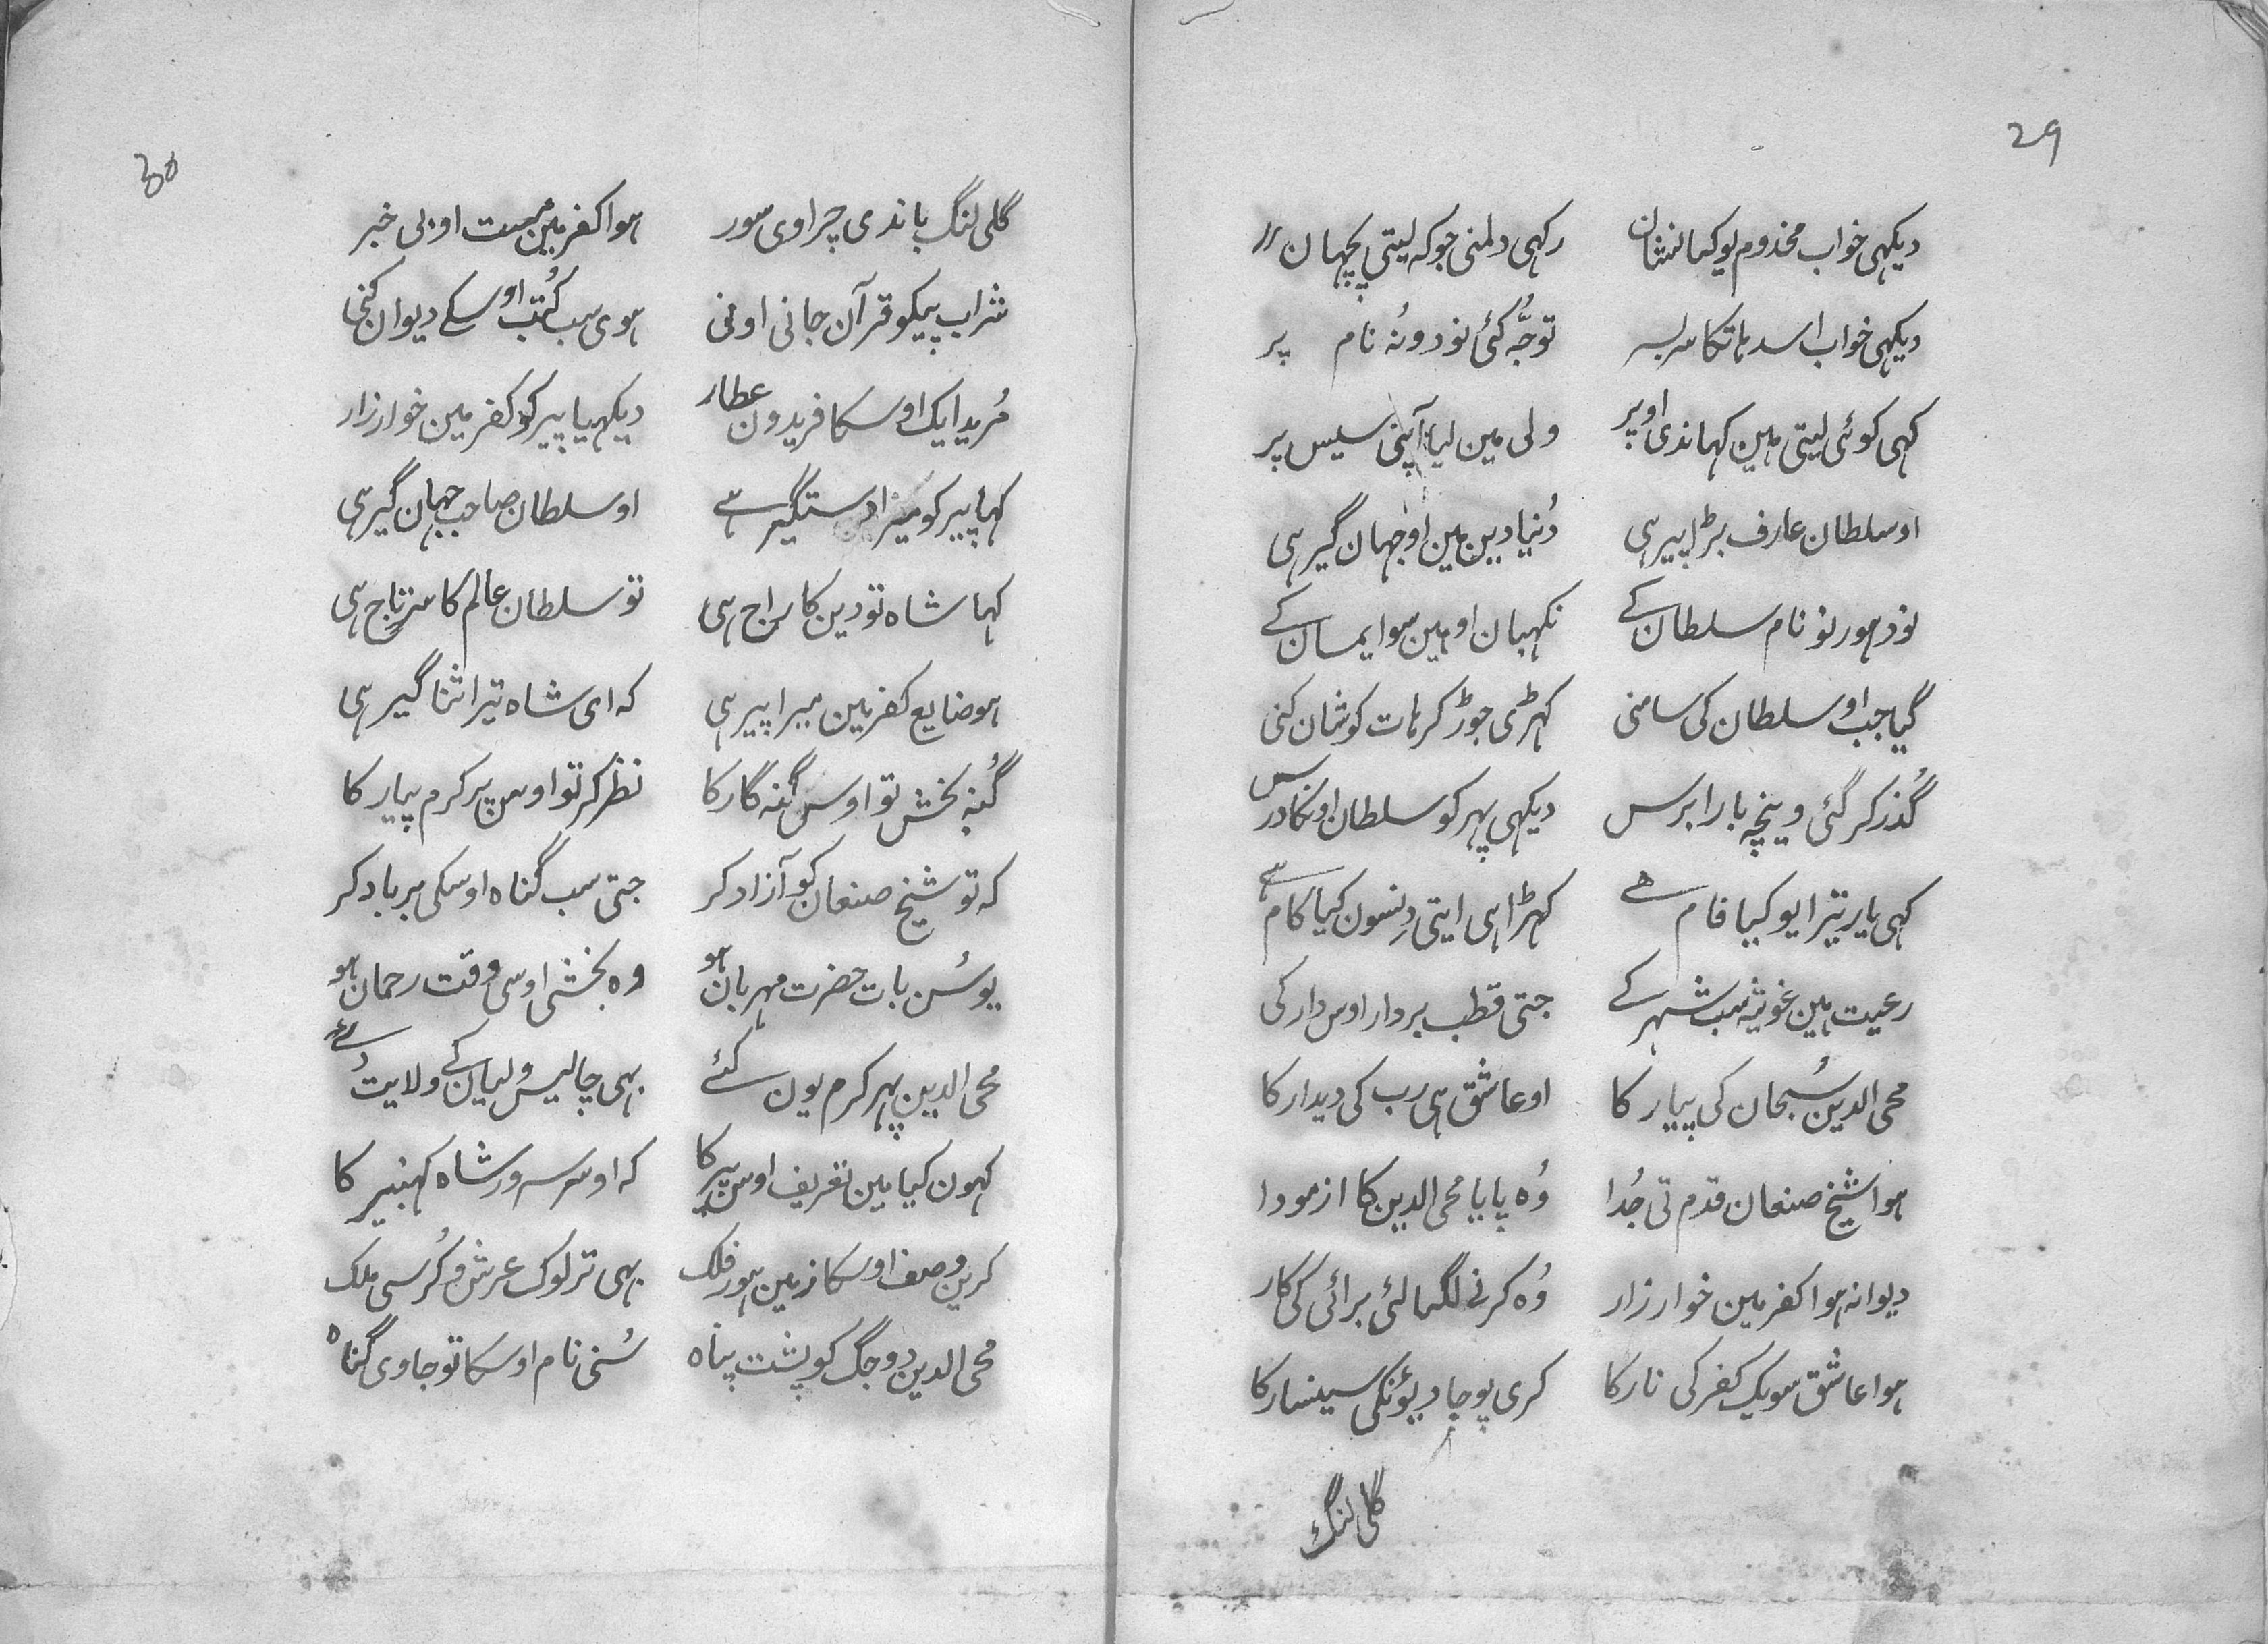 29
دیکہی خواب مخذوم یو کیا نشان رکہی دلمنی جو کہ لیتی پچہان
دیکہی خواب اسد ہاتکا سر بسر توجّہ کئی نود ونُہ نام پر
کہی کوئی لیتی ہین کہاندی اوپر ولی مین لیا آپنی سیس پر
او سلطان عارف بڑا پیر ہی دُنیا دین مین او جہان گیر ہی
نود ہور نو نام سلطان کے نکہبان او ہین سو ایمان کے
گیا جب او سلطان کی سامنی کہڑی جوڑ کر ہات کو شان کنی
گُذر کر گئی وینچہ بارا برس دیکہی پہر کو سلطان اونکا درس
کہی یار تیرا یو کیا فام ہے کہڑا ہی ایتی دِنسون کیا کام ہے
رعیت ہین غوثیہ سب شہر کے جتی قطب بردار اوس دار کی
محی الدین سُبحان کی پیار کا او عاشق ہی رب کی دیدار کا
ہوا شیخ صنعان قدم تی جُدا وُہ پایا محی الدین کا ازمودا
دیوانہ ہوا کفر مین خوار زار وُہ کرنے لگیا لئی برائی کی کار
ہوا عاشق سو یک کفر کی نار کا کری پوجا دیوئنکی سینسار کا
گلی لنگ
30
گلی لنگ باندی چراوی سور ہوا کفر مین مست او بی خبر
شراب پیکو قرآن جانی اونی ہوی سب کُتب اوسکے دیوان کنی
مُرید ایک اوسکا فریدون عطار دیکہیا پیر کو کفر مین خوار زار
کہا پیر کو میرا دستگیر ہے او سلطان صاحب جہان گیر ہی
کہا شاہ تو دین کا راج ہی تو سلطان عالم کا سرتاج ہی
ہو ضایع کفر مین میرا پیر ہی کہ ای شاہ تیرا ثنا گیر ہی
گُنہ بخش تو اوس گنہ گار کا نظر کر تو اوس پر کرم پیار کا
کہ تو شیخ صنعان کو آزاد کر جتی سب گناہ اوسکی برباد کر
یو سُن بات حضرت مہربان ہو وہ بخشی اوسی وقت رحمان ہو
محی الدین پہر کرم یون کئے بہی چالیس ولیان کے ولایت دُے
کہون کیا مین تعریف اوس پیر کا کہ او سرور شاہ کہنبیر کا
کرین وصف اوسکا زمین ہور فلک بہی ترلوک عرش و کُرسی ملک
محی الدین دو جگ کو پشت پناہ سُنی نام اوسکا تو جاوی گناہ